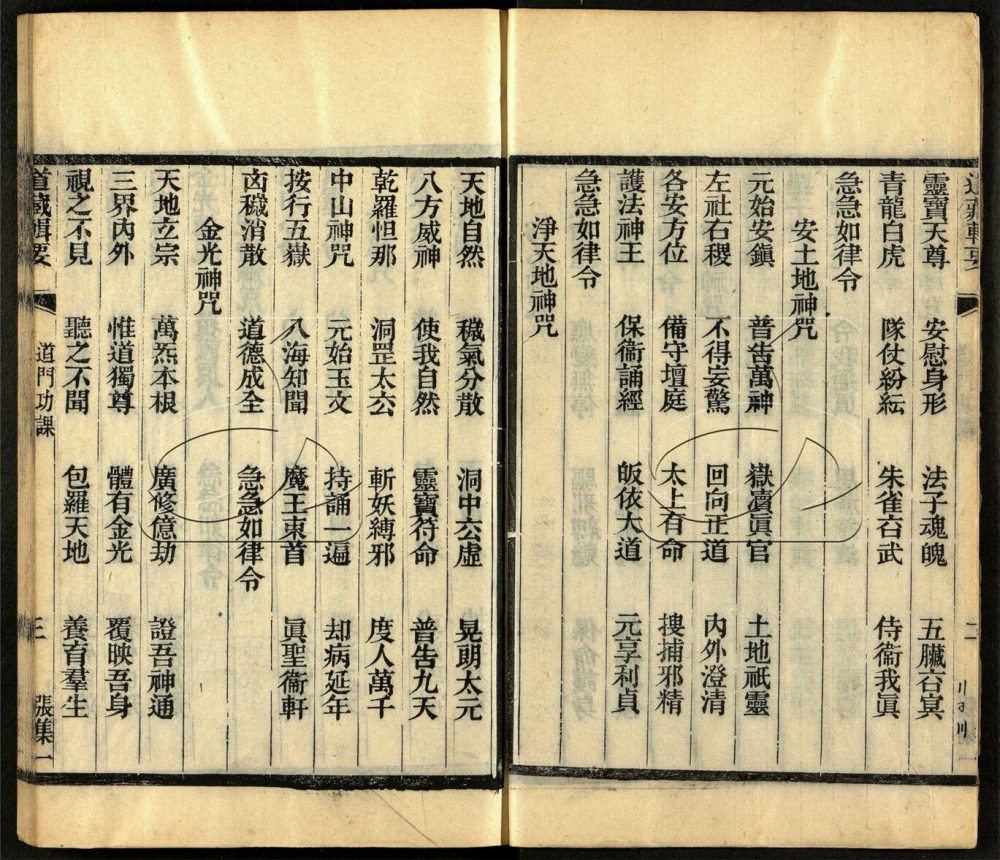 道藏輯要
二
靈寶天尊　安慰身形　法子魂魄　五臟玄冥
青龍白虎　隊仗紛紜　朱雀玄武　侍衞我眞
急急如律令
安土地神咒
元始安鎭　普告萬神　嶽瀆眞官　土地祇靈
左社右稷　不得妄驚　回向正道　內外澄清
各安方位　備守壇庭　太上有命　搜捕邪精
護法神王　保衞誦經　皈依大道　元享利貞
急急如律令
淨天地神咒
天地自然　穢氣分散　洞中玄虛　晃朗太元
八方威神　使我自然　靈寶符命　普告九天
乾羅怛那　洞罡太玄　斬妖縛邪　度人萬千
中山神咒　元始玉文　持誦一遍　却病延年
按行五嶽　八海知聞　魔王束首　眞聖衞軒
凶穢消散　道德成全　急急如律令
金光神咒
天地立宗　萬炁本根　廣修億劫　證吾神通
三界內外　惟道獨尊　體有金光　覆映吾身
視之不見　聽之不聞　包羅天地　養育羣生
道藏輯要　道門功課　三　張集一